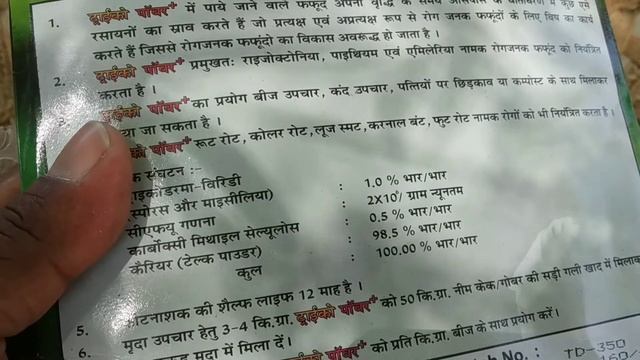 1. ट्राईको पॉवर+ में पाये जाने वाले फफूंद अपनी वृद्धि के समय आसपास के वातावरण में कुछ ऐसे
रसायनों का स्राव करते हैं जो प्रत्यक्ष एवं अप्रत्यक्ष रूप से रोग जनक फफूंदों के लिए विष का कार्य
करते हैं जिससे रोगजनक फफूंदो का विकास अवरूद्ध हो जाता है।
2. ट्राईको पॉवर+ प्रमुखतः राइजोक्टोनिया, पाइथियम एवं एमिलेरिया नामक रोगजनक फफूंद को नियंत्रित
करता है।
ट्राईको पॉवर+ का प्रयोग बीज उपचार, कंद उपचार, पत्तियों पर छिड़काव या कम्पोस्ट के साथ मिलाकर
या जा सकता है।
को पॉवर+ रूट रोट, कोलर रोट, लूज स्मट, करनाल बंट, फुट रोट नामक रोगों को भी नियंत्रित करता है।
क संघटन :-
ट्राइकोडरमा-विरिडी : 1.0 % भार/भार
(स्पोरस और माइसीलिया)
सीएफयू गणना : 2X10/ ग्राम न्यूनतम
कार्बोक्सी मिथाइल सेल्यूलोस : 0.5 % भार/भार
कैरियर (टेल्क पाउडर) : 98.5 % भार/भार
कुल 100.00 % भार/भार
5. कीटनाशक की शैल्फ लाइफ 12 माह है।
6. मृदा उपचार हेतु 3-4 कि.ग्रा. ट्राईको पॉवर+ को 50 कि.ग्रा. नीम केक/गोबर की सड़ी गली खाद में मिलाक
मृदा में मिला दें।
पॉवर+ को प्रति कि.ग्रा. बीज के साथ प्रयोग करें।
No. : TD-350